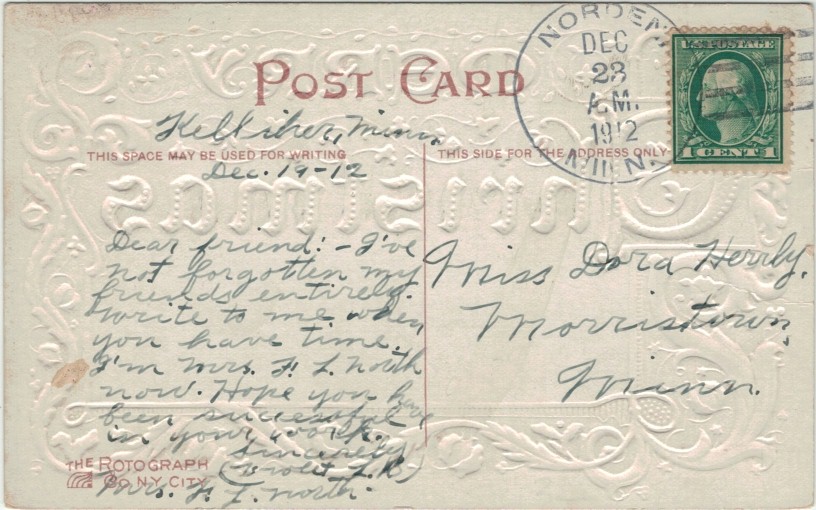 POST CARD
Kelliher, Minn
THIS SPACE MAY BE USED FOR WRITING
Dec. 19-12
Dear friend: - I've
not forgotten my
friends entirely.
Write to me when
you have time.
I'm Mrs. F. L. North
now. Hope you have
been successful
in your work.
Sincerely
Mrs. F. L. North.
THE ROTOGRAPH
CO. N.Y. CITY
THIS SIDE FOR THE ADDRESS ONLY
NORDEN
DEC
23
A.M.
1912
MINN.
U.S. POSTAGE
1 CENT 1
Miss Dora Herrly.
Morristown,
Minn.
Christmas